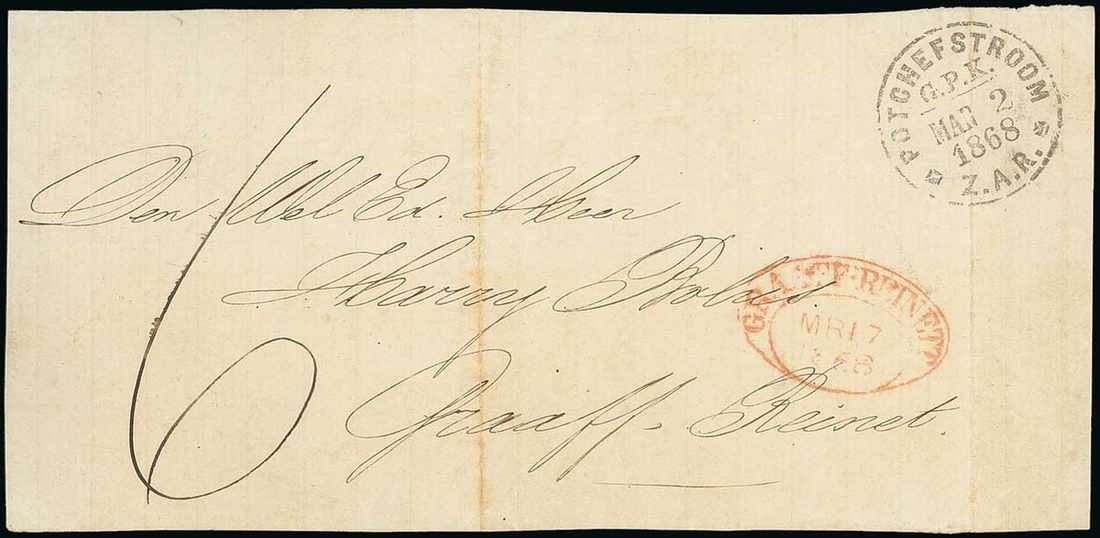 POTCHEFSTROOM
G.P.K.
MAR 2
1868
Z.A.R.
6
Den Wel Ed. Heer
Harry Bolus
Graaff-Reinet.
GRAAFF-REINET
MR 17
1868